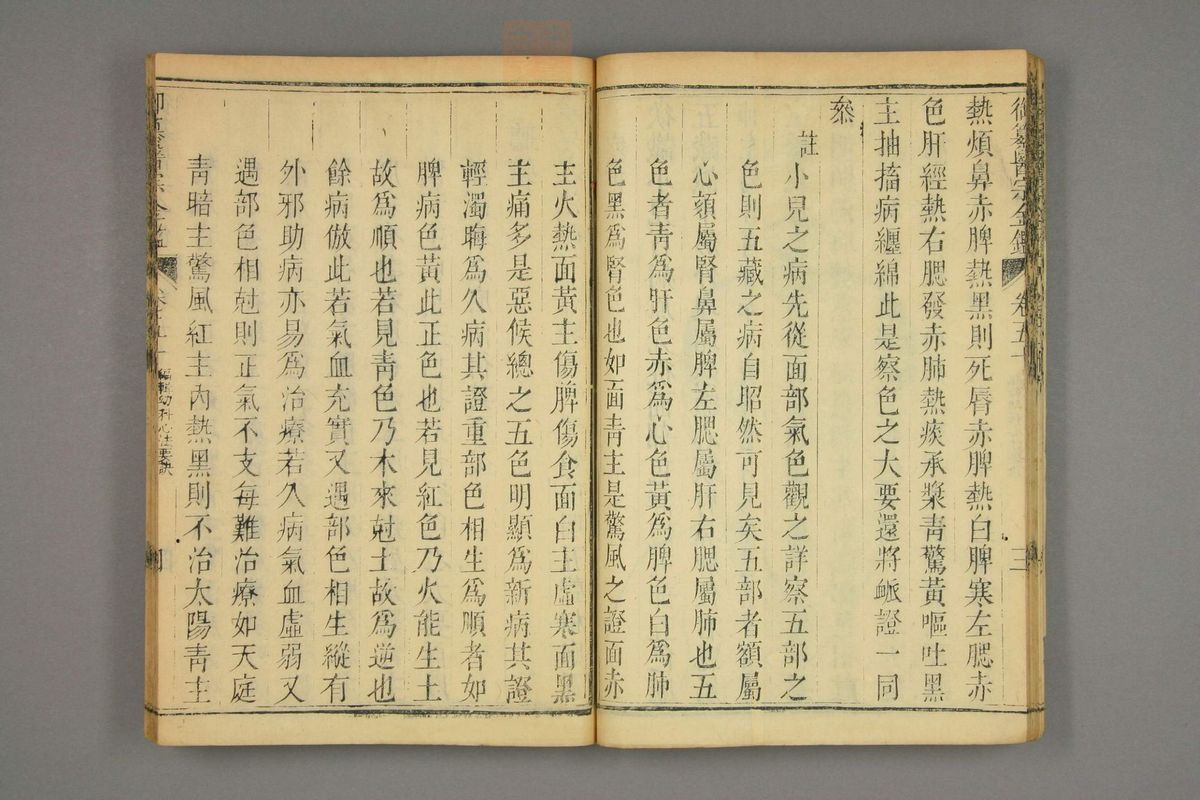 御纂醫宗金鑑 卷五十 三
熱煩鼻赤脾熱黑則死脣赤脾熱白脾寒左腮赤
色肝經熱右腮發赤肺熱痰承漿青驚黃嘔吐黑
主抽搐病纏綿此是察色之大要還將脈證一同
叅
註
小兒之病先從面部氣色觀之詳察五部之
色則五藏之病自昭然可見矣五部者額屬
心頦屬腎鼻屬脾左腮屬肝右腮屬肺也五
色者青爲肝色赤爲心色黃爲脾色白爲肺
色黑爲腎色也如面青主是驚風之證面赤
主火熱面黃主傷脾傷食面白主虛寒面黑
主痛多是惡候總之五色明顯爲新病其證
輕濁晦爲久病其證重部色相生爲順者如
脾病色黃此正色也若見紅色乃火能生土
故爲順也若見青色乃木來尅土故爲逆也
餘病倣此若氣血充實又遇部色相生縱有
外邪助病亦易爲治療若久病氣血虛弱又
遇部色相尅則正氣不支每難治療如天庭
青暗主驚風紅主內熱黑則不治太陽青主
編輯幼科心法要訣